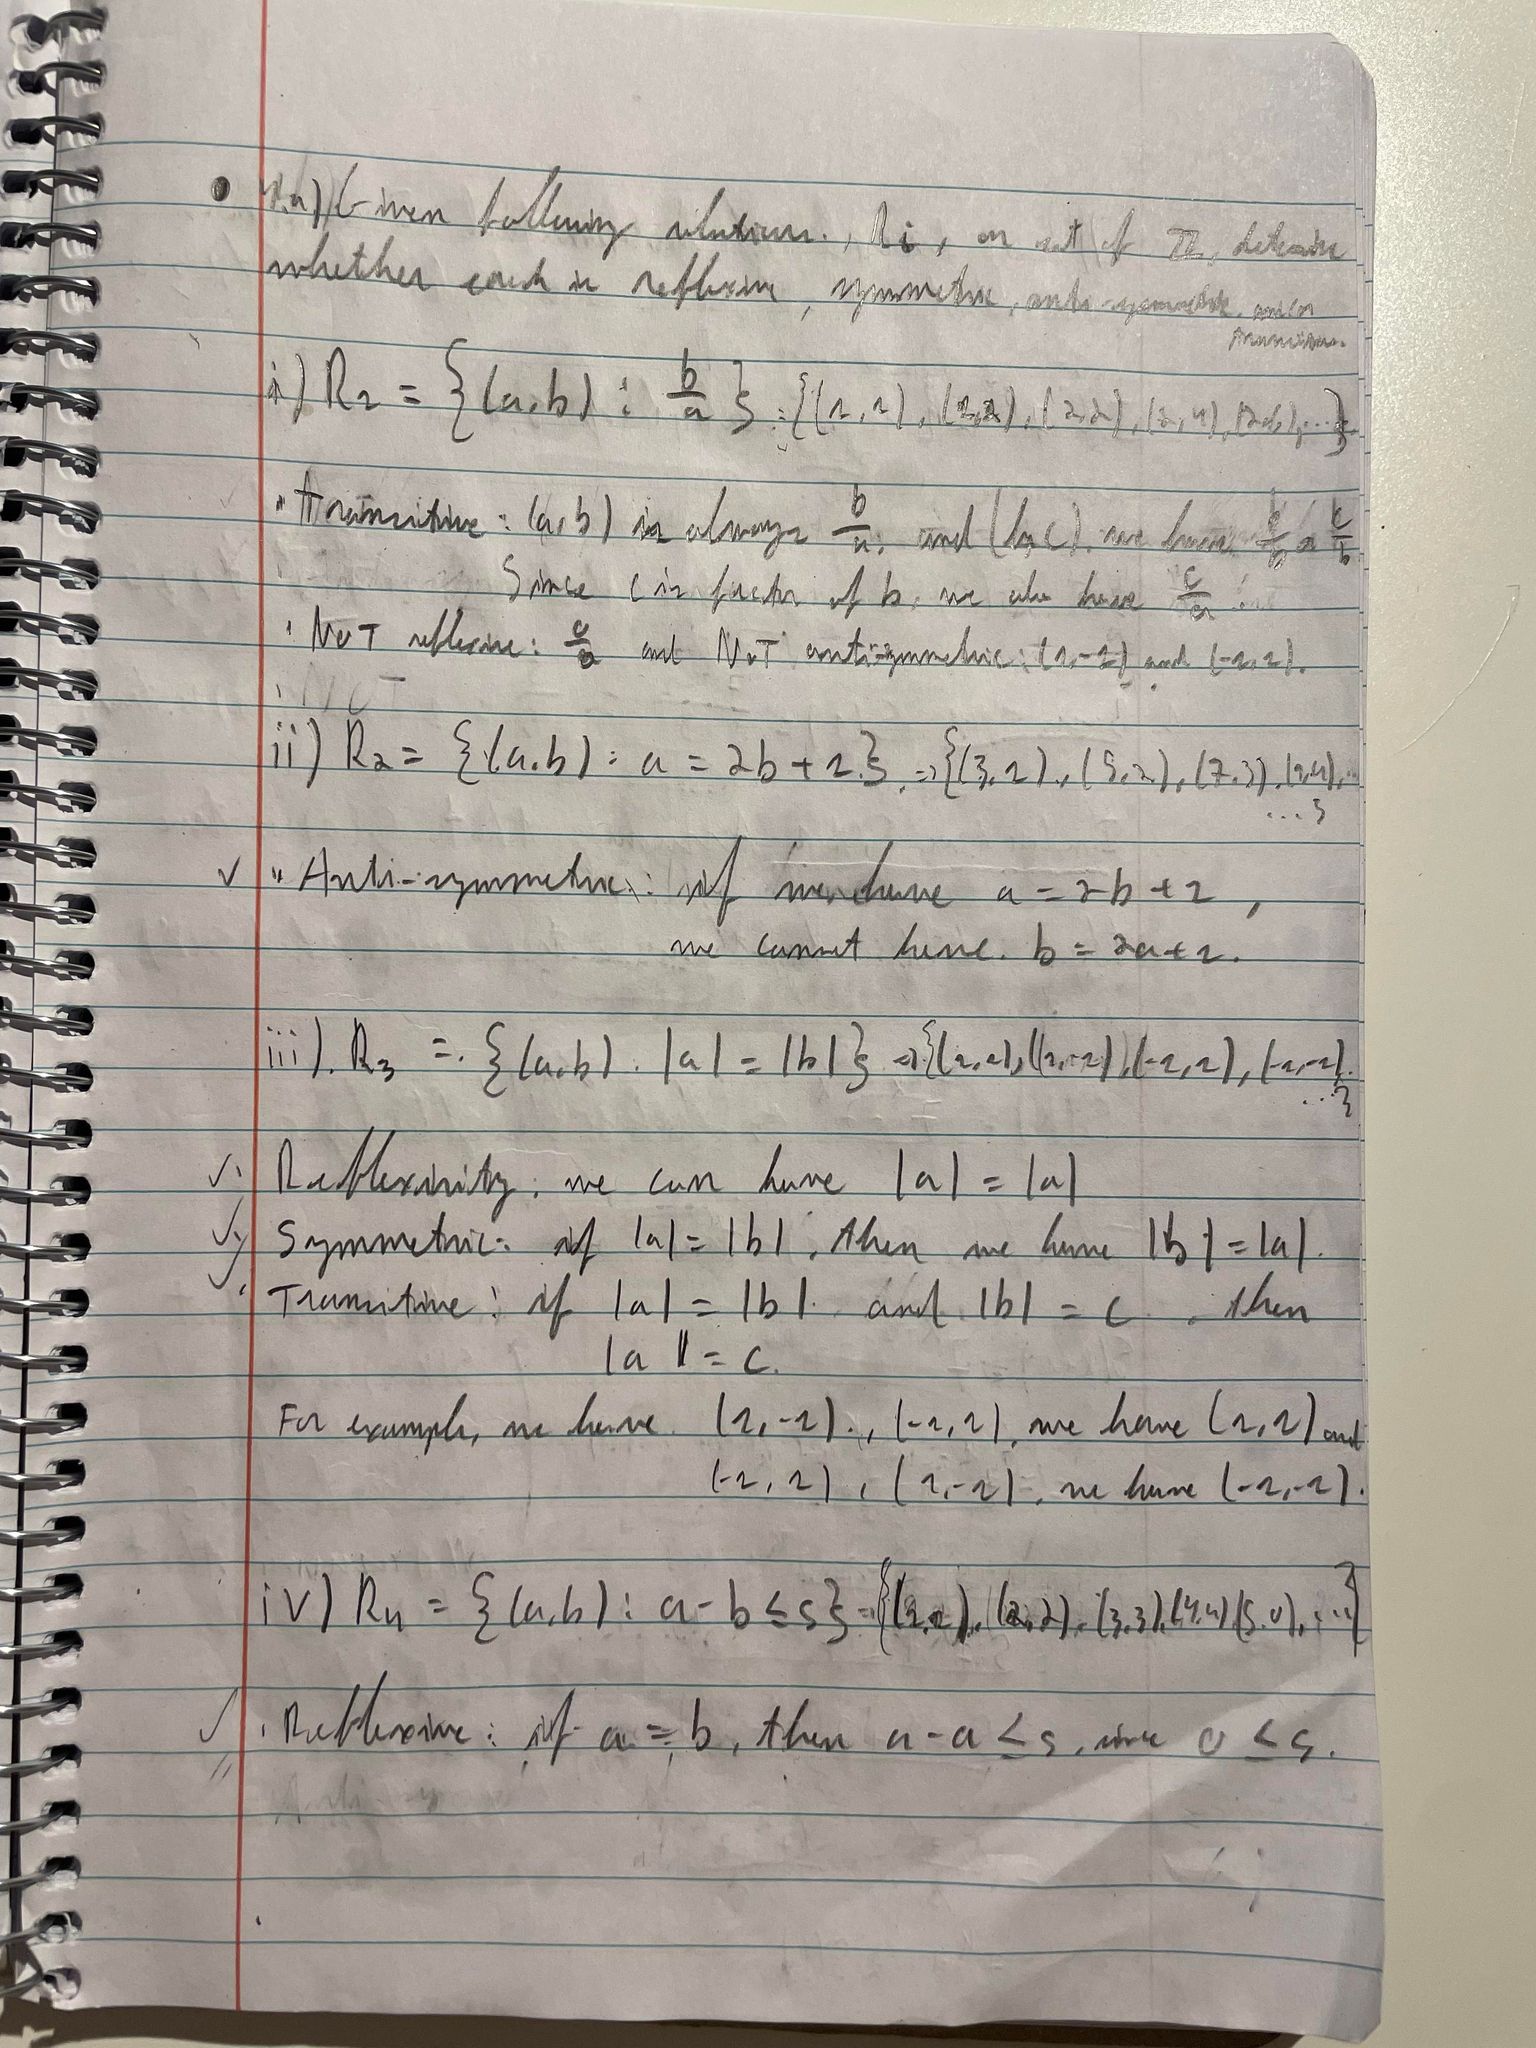 1.a) Given following relations, Ri, on set of ℤ, determine
whether each is reflexive, symmetric, anti-symmetric, and/or
transitive.
i) R1 = {(a,b) : b/a } = {(1,1), (1,2), (2,2), (2,4), (2,6), ...}
Transitive: (a,b) is always b/a, and (b,c), we have c/b
Since c is factor of b, we also have c/a
NOT reflexive: 0/0 and NOT anti-symmetric: (1,-1) and (-1,1).
ii) R2 = {(a,b) : a = 2b+1} => {(3,1), (5,2), (7,3), (9,4), ...
...}
✓ Anti-symmetric: if we have a = 2b+1,
we cannot have b = 2a+1.
iii) R3 = {(a,b) . |a| = |b|} => {(1,1), (1,-1), (-1,1), (-1,-1)
...}
✓ Reflexivity: we can have |a| = |a|
✓ Symmetric: if |a| = |b|, then we have |b| = |a|.
✓ Transitive: if |a| = |b| and |b| = c, then
|a|| = c.
For example, we have (1,-1), (-1,1), we have (1,1) and
(-1,1), (1,-1), we have (-1,-1).
iv) R4 = {(a,b) : a-b ≤ 5} = {(1,1), (2,2), (3,3), (4,4), (5,0), ...}
✓ Reflexive: if a = b, then a-a ≤ 5, since 0 ≤ 5.